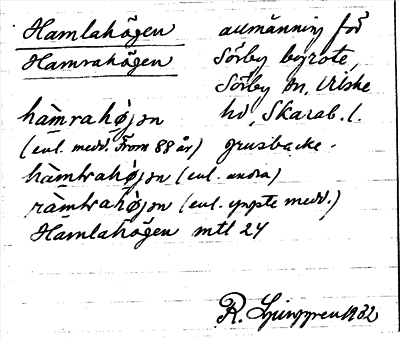 Hamlahögen allmänning för
Hamrahögen Sörby byrote,
Sörby sn, Vilske
hàmrahøjən hd, Skarab. l.
(enl. medd. From 88 år) grusbacke.
hàmbrahøjən (enl. andra)
ràmbrahøjən (enl. yppte medd.)
Hamlahögen mtl 24
R. Ljunggren 1932